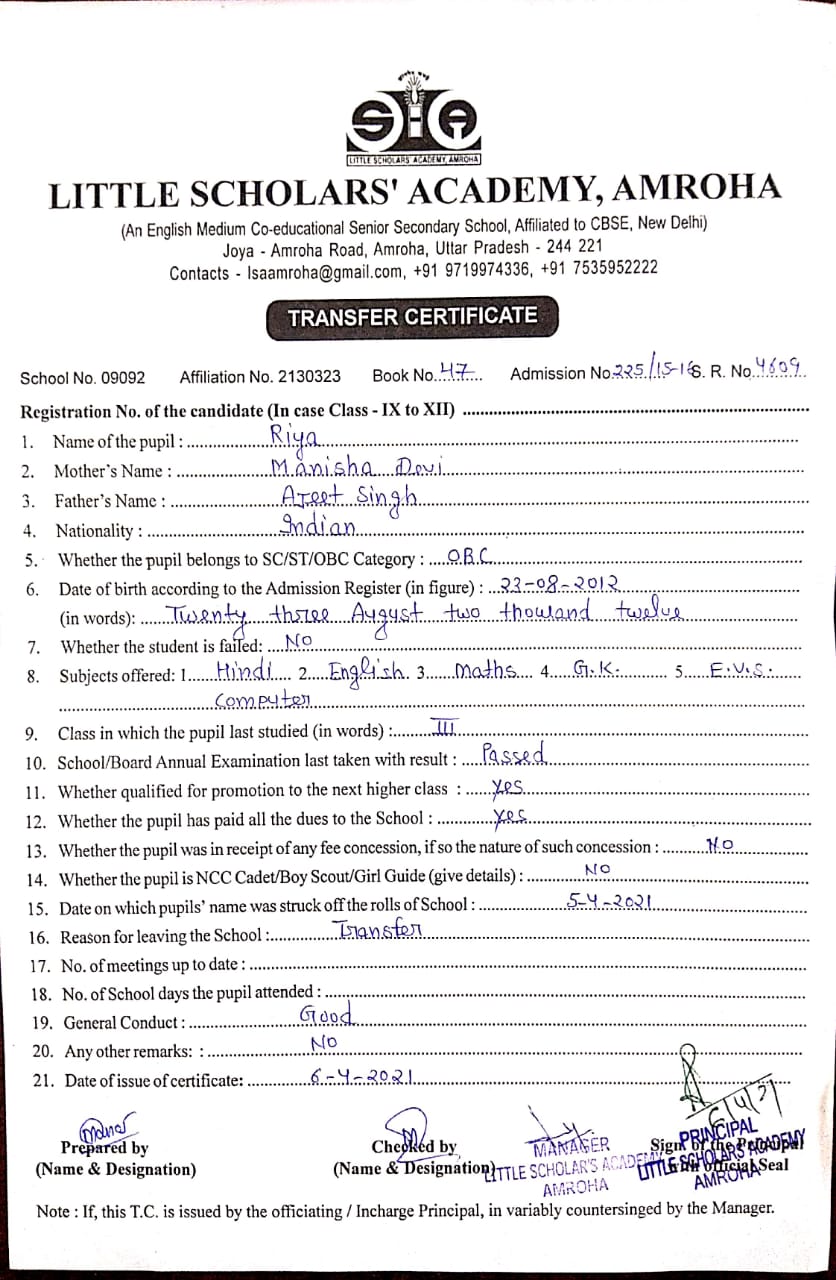 LITTLE SCHOLARS ACADEMY, AMROHA
LITTLE SCHOLARS' ACADEMY, AMROHA
(An English Medium Co-educational Senior Secondary School, Affiliated to CBSE, New Delhi)
Joya - Amroha Road, Amroha, Uttar Pradesh - 244 221
Contacts - lsaamroha@gmail.com, +91 9719974336, +91 7535952222
TRANSFER CERTIFICATE
School No. 09092 Affiliation No. 2130323 Book No. 47 Admission No. 225/15-16 S. R. No. 4609
Registration No. of the candidate (In case Class - IX to XII)
1. Name of the pupil : Riya
2. Mother's Name : Manisha Devi
3. Father's Name : Ajeet Singh
4. Nationality : Indian
5. Whether the pupil belongs to SC/ST/OBC Category : O.B.C
6. Date of birth according to the Admission Register (in figure) : 23-08-2012
(in words): Twenty three August two thousand twelve
7. Whether the student is failed: No
8. Subjects offered: 1 Hindi 2 English 3 Maths 4 G.K. 5 E.V.S.
Computer
9. Class in which the pupil last studied (in words) : III
10. School/Board Annual Examination last taken with result : Passed
11. Whether qualified for promotion to the next higher class : Yes
12. Whether the pupil has paid all the dues to the School : Yes
13. Whether the pupil was in receipt of any fee concession, if so the nature of such concession : No
14. Whether the pupil is NCC Cadet/Boy Scout/Girl Guide (give details) : No
15. Date on which pupils' name was struck off the rolls of School : 5-4-2021
16. Reason for leaving the School : Transfer
17. No. of meetings up to date :
18. No. of School days the pupil attended :
19. General Conduct : Good
20. Any other remarks: : No
21. Date of issue of certificate: 6-4-2021
6/4/21
Prepared by Checked by MANAGER Sign of the Principal PRINCIPAL
(Name & Designation) (Name & Designation) LITTLE SCHOLAR'S ACADEMY LITTLE SCHOLARS ACADEMY official Seal
AMROHA AMROHA
Note : If, this T.C. is issued by the officiating / Incharge Principal, in variably countersinged by the Manager.